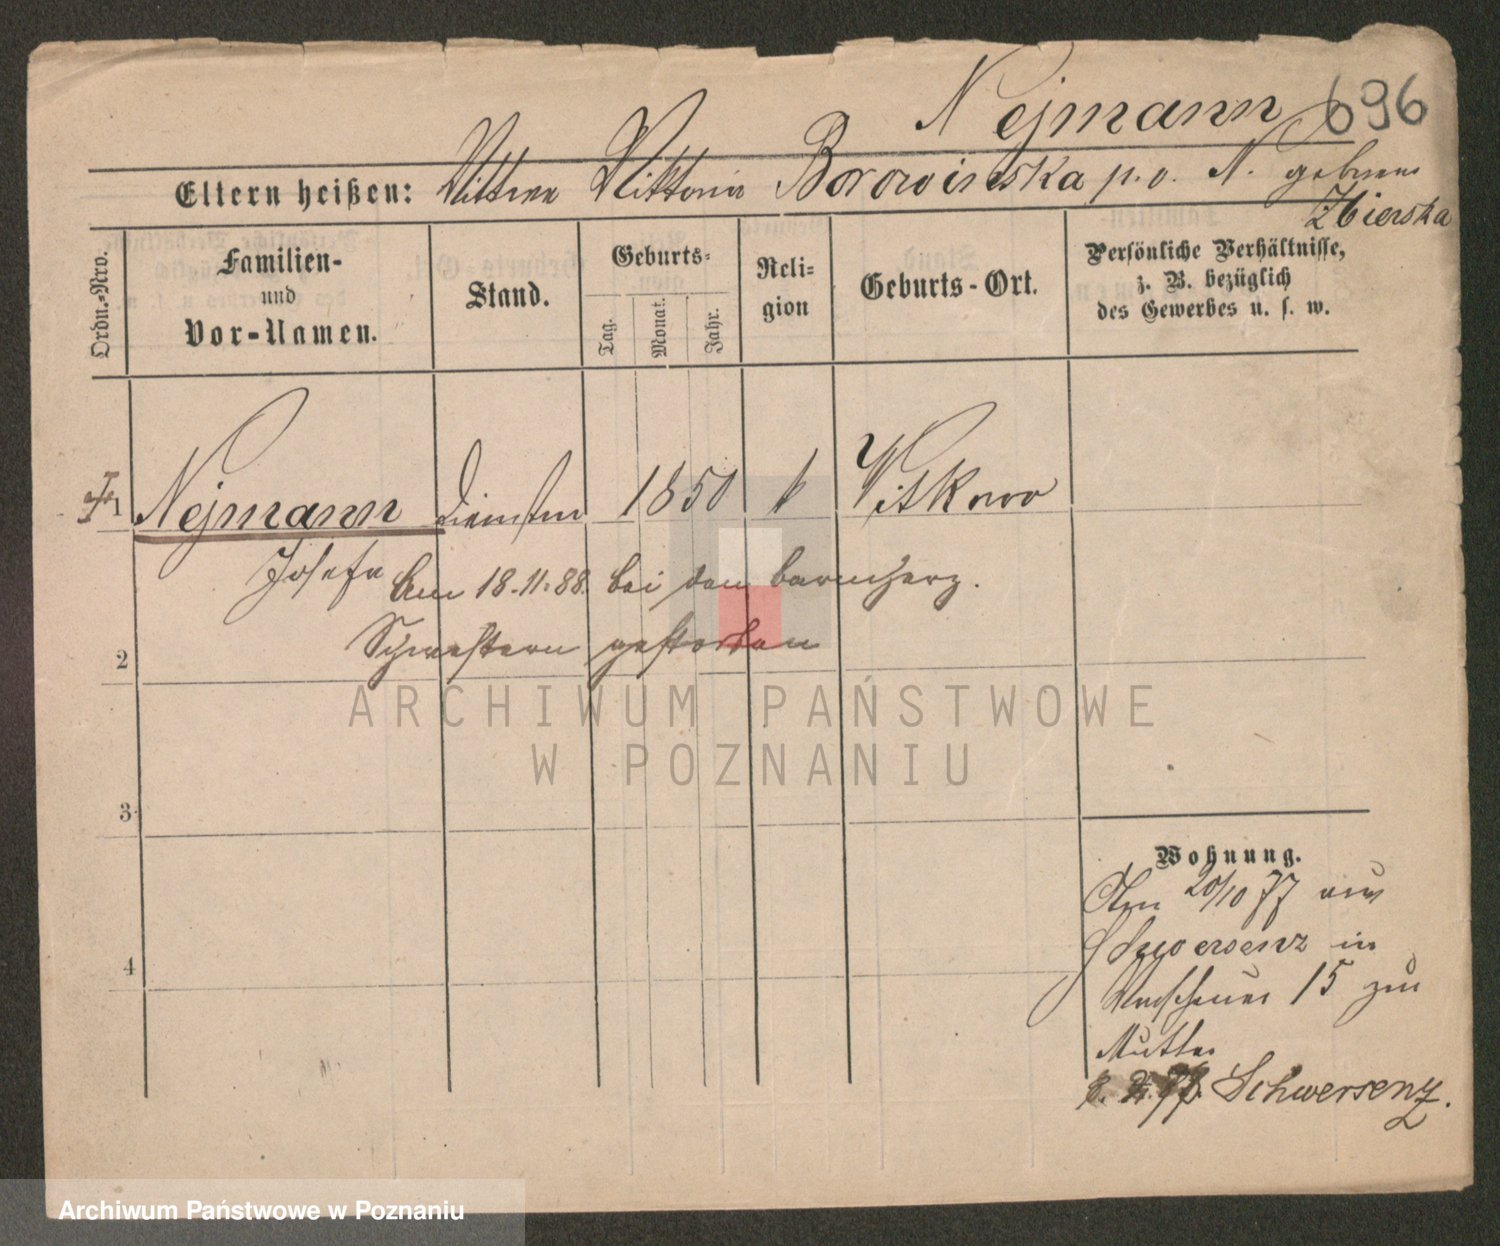 Nejmann 696
Eltern heißen: Mutter Viktoria Borowinska p. v. N. geborne
Zbierska
Ordn.-Nro.
Familien-
und
Vor-Namen.
Stand.
Geburts-
Tag.
Monat.
Jahr.
Reli-
gion
Geburts-Ort.
Persönliche Verhältnisse,
z. B. bezüglich
des Gewerbes u. s. w.
1 Nejmann 1850 k Witkowo
Josefa Am 18.11.88. bei den barmherz.
Schwestern gestorben
2
ARCHIWUM PAŃSTWOWE
W POZNANIU
3
4
Wohnung.
Am 20/10 77 aus
Schwersenz in
15 zur
Mutter
Schwersenz.
Archiwum Państwowe w Poznaniu